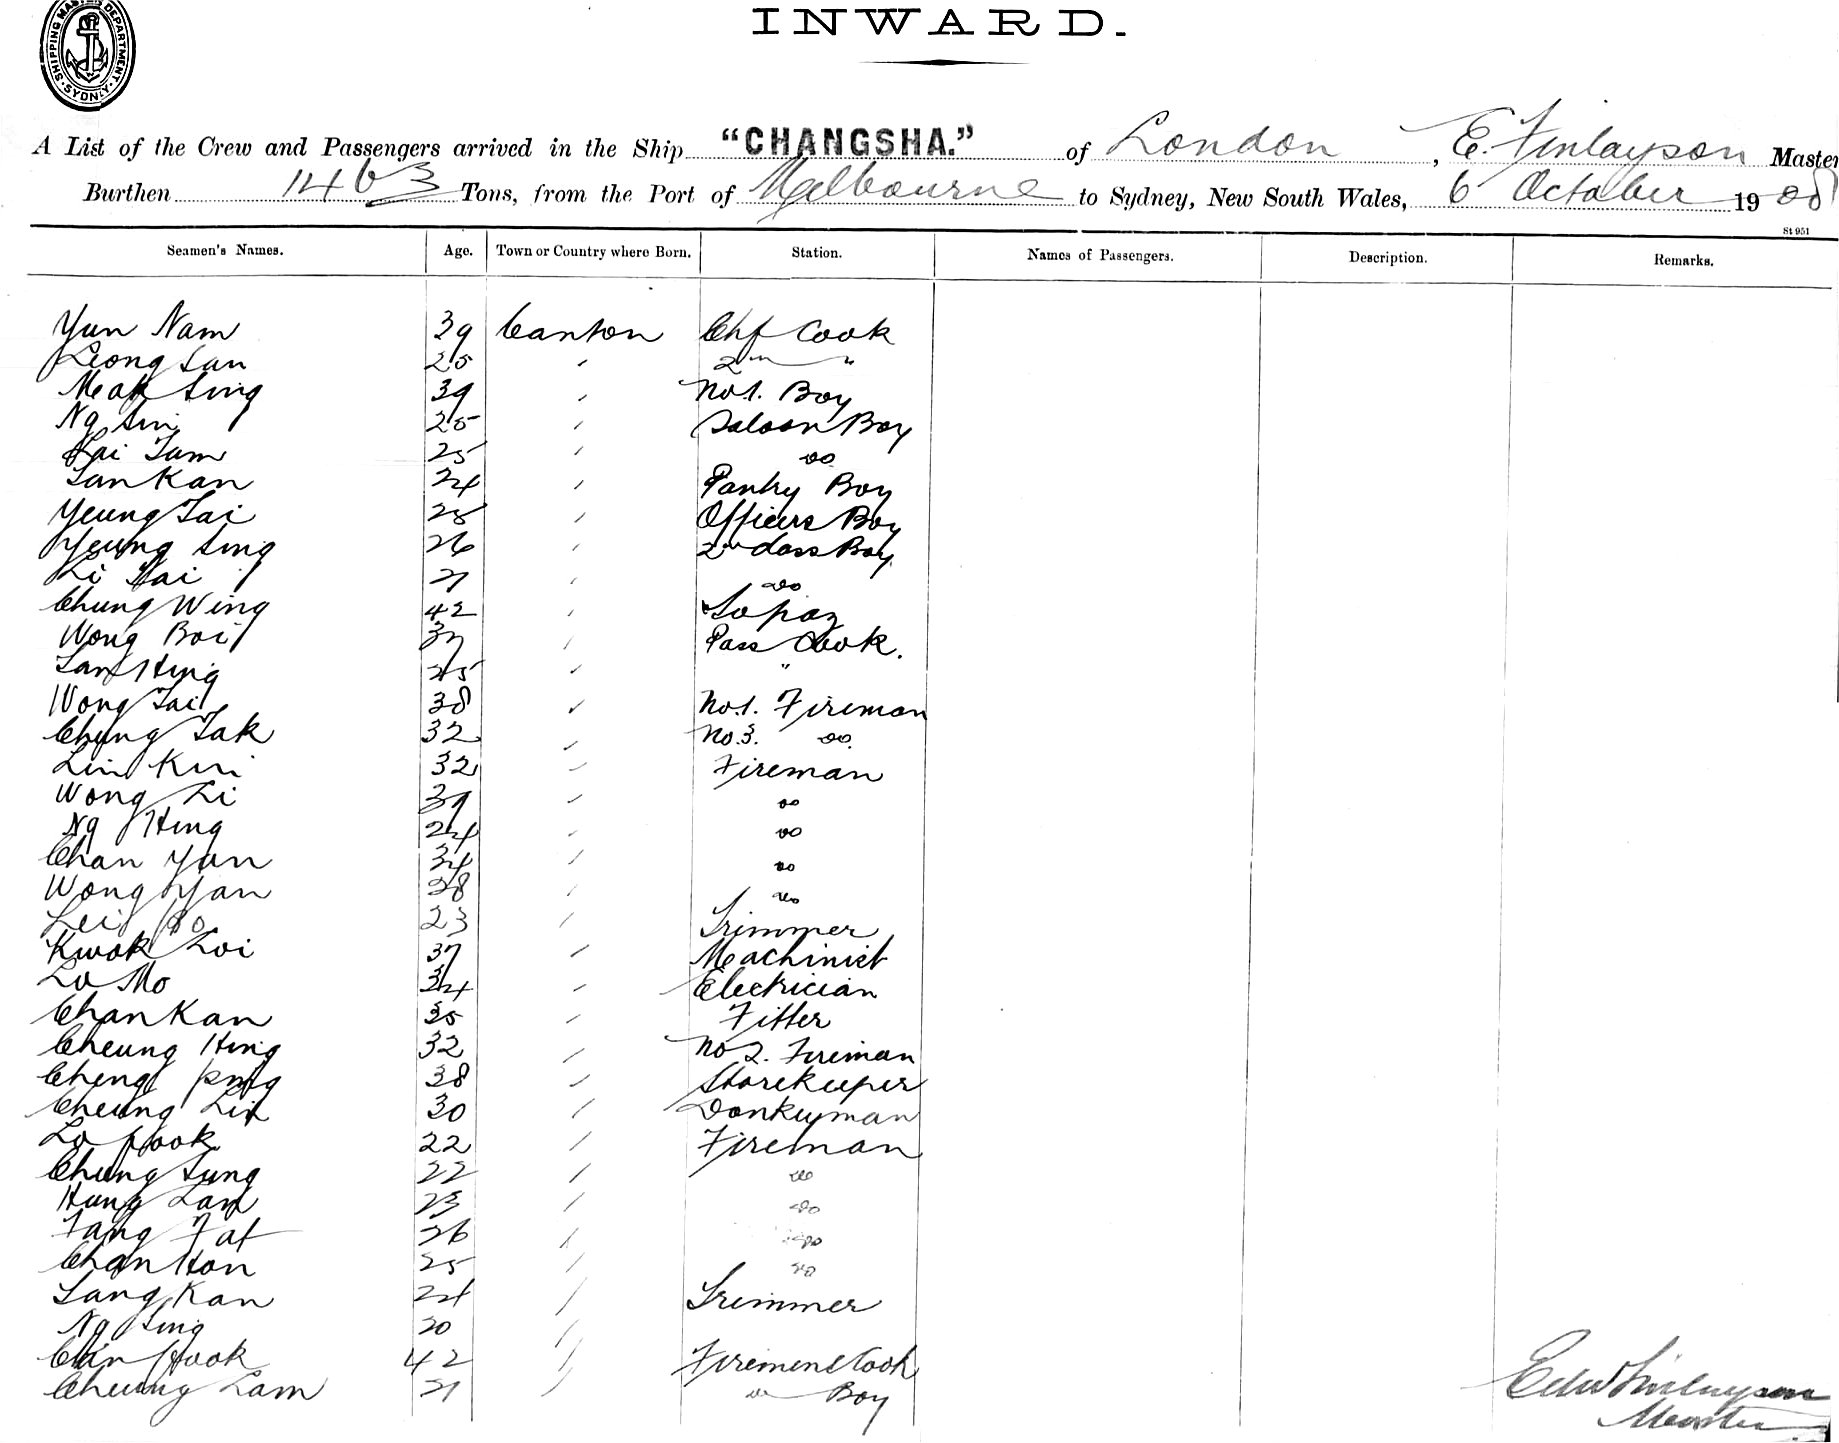 INWARD.
SHIPPING MASTER DEPARTMENT · SYDNEY ·
A List of the Crew and Passengers arrived in the Ship "CHANGSHA." of London, E. Finlayson Master
Burthen 1463 Tons, from the Port of Melbourne to Sydney, New South Wales, 6 October 1908
St 951
Seamen's Names. Age. Town or Country where Born. Station. Names of Passengers. Description. Remarks.
Yun Nam 39 Canton Chf Cook
Leong San 25 " 2nd "
Meak Sing 39 " No 1. Boy
Ng Sin 25 " Saloon Boy
Lai Tam 25 " do
San Kan 24 " Pantry Boy
Yeung Tai 25 " Officers Boy
Yeung Sing 26 " 2nd Class Boy
Li Tai 21 " do
Chung Wing 42 " Topaz
Wong Boi 37 " Pass Cook.
Lam Hing 45 " "
Wong Tai 38 " No.1. Fireman
Chung Tak 32 " No.3. do.
Lin Kui 32 " Fireman
Wong Li 39 " do
Ng Hing 24 " do
Chan Yun 34 " do
Wong Yan 28 " do
Lei 23 " Trimmer
Kwok Loi 37 " Machinist
Lo Mo 34 " Electrician
Chan Kan 35 " Fitter
Cheung Hing 32 " No 2. Fireman
Cheng 38 " Storekeeper
Cheung 30 " Donkeyman
Lo Hook 22 " Fireman
Chung Sung 22 " do
Hung Lam 23 " do
Fang Fat 26 " do
Chan Hon 25 " do
Tang Kan 24 " Trimmer
Ng Sing 20 "
Hook 42 " Firemens Cook
Cheung Lam 21 " do Boy
Edw Finlayson
Master